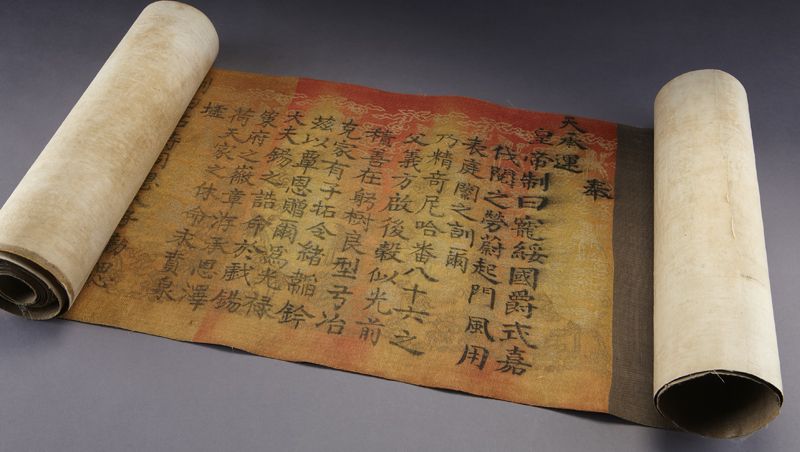 奉
天承運
皇帝制曰寵綏國爵式嘉
伐閱之勞蔚起門風用
表庭闈之訓爾
乃精奇尼哈番八十六之
父義方啟後穀似光前
積善在躬樹良型弓冶
克家有子拓令緒韜鈐
茲以覃恩贈爾爲光祿
大夫錫之誥命於戲錫
策府之徽章洊承恩澤
荷天家之休命永賁泉
壚